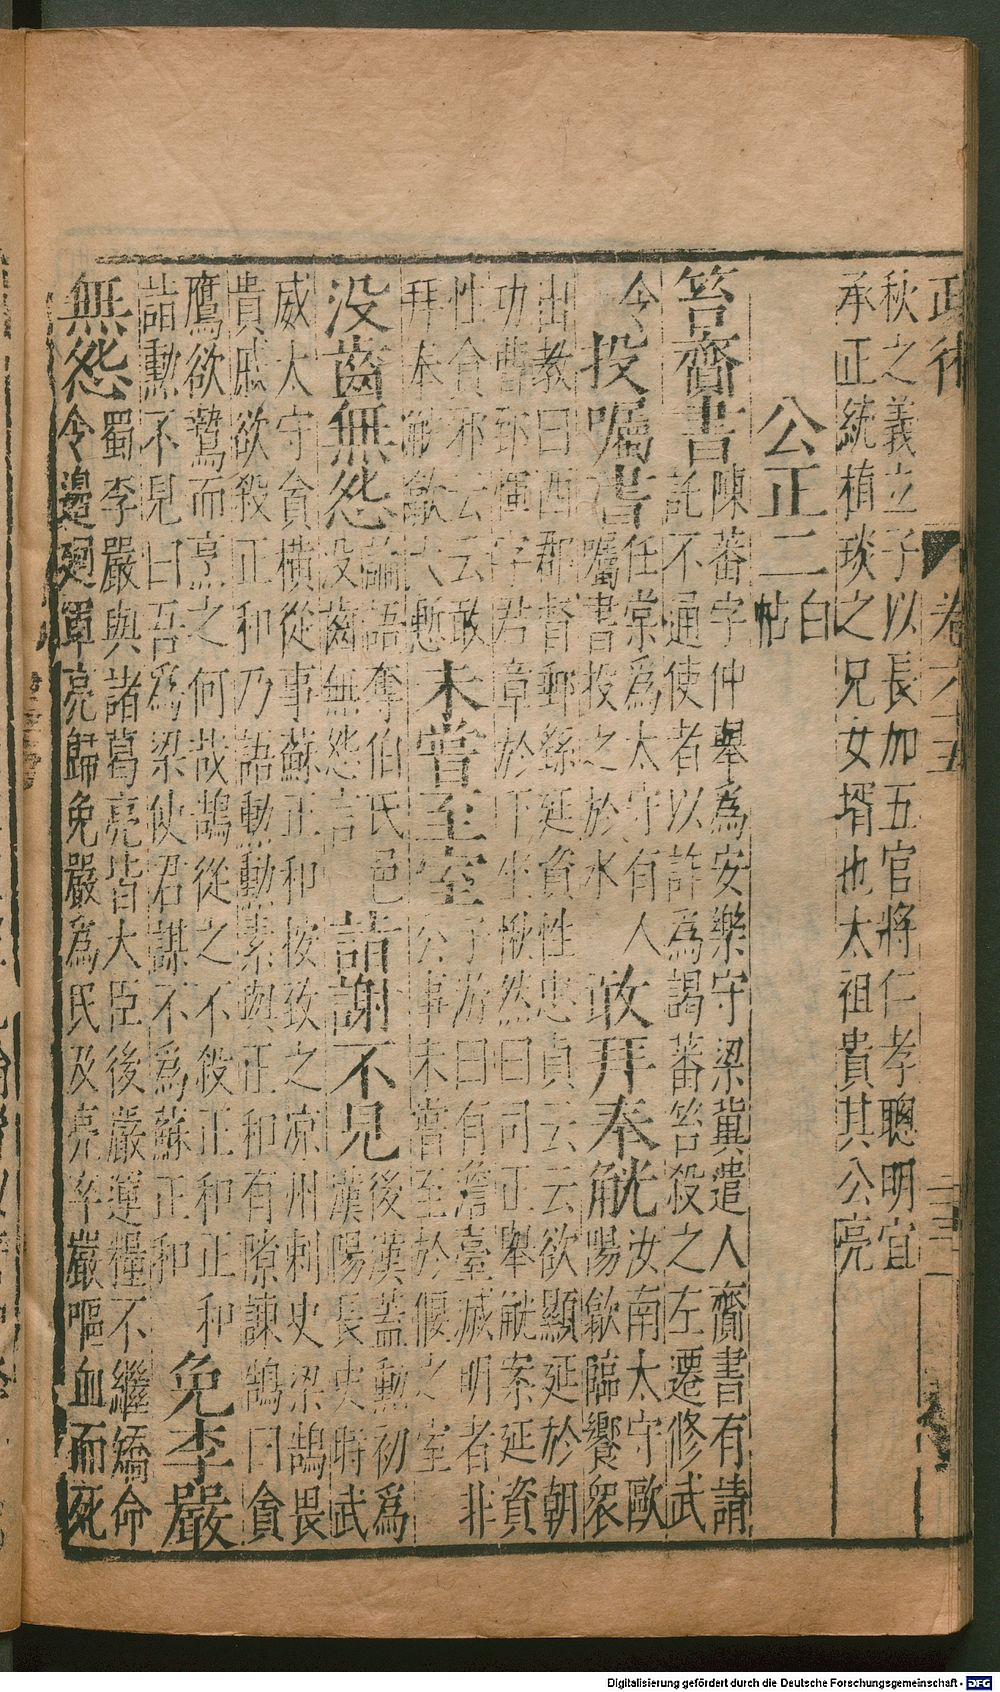 政術 卷六十五 二三
秋之義立子以長加五官將仁孝聰明宜
承正統植琰之兄女壻也太祖貴其公亮
公正二 白
帖
笞齎書 陳蕃字仲舉爲安樂守梁冀遣人齎書有請
託不通使者以詐爲謁蕃笞殺之左遷修武
令 任棠爲太守有人
投囑書 囑書投之於水
敢拜奉觥 汝南太守歐
陽歙臨饗衆
出教曰西郡督郵繇延資性忠貞云云欲顯延於朝
功曹郅惲字君章於下坐愀然曰司正舉觥案延資
性貪邪云云敢
拜奉觥歙大慙
未嘗至室 子游曰有澹臺滅明者非
公事未嘗至於偃之室
沒齒無怨 論語奪伯氏邑
沒齒無怨言
詰謝不見 後漢蓋勳初爲
漢陽長史時武
威太守貪橫從事蘇正和按致之凉州刺史梁鵠畏
貴戚欲殺正和乃語勳勳素與正和有隙諫鵠曰貪
鷹欲鷙而烹之何哉鵠從之不殺正和正和
詰勳不見曰吾爲梁使君謀不爲蘇正和
免李嚴
無怨 蜀李嚴與諸葛亮皆大臣後嚴運糧不繼矯命
令還廻軍亮歸免嚴爲民及亮卒嚴嘔血而死
Digitalisierung gefördert durch die Deutsche Forschungsgemeinschaft - DFG